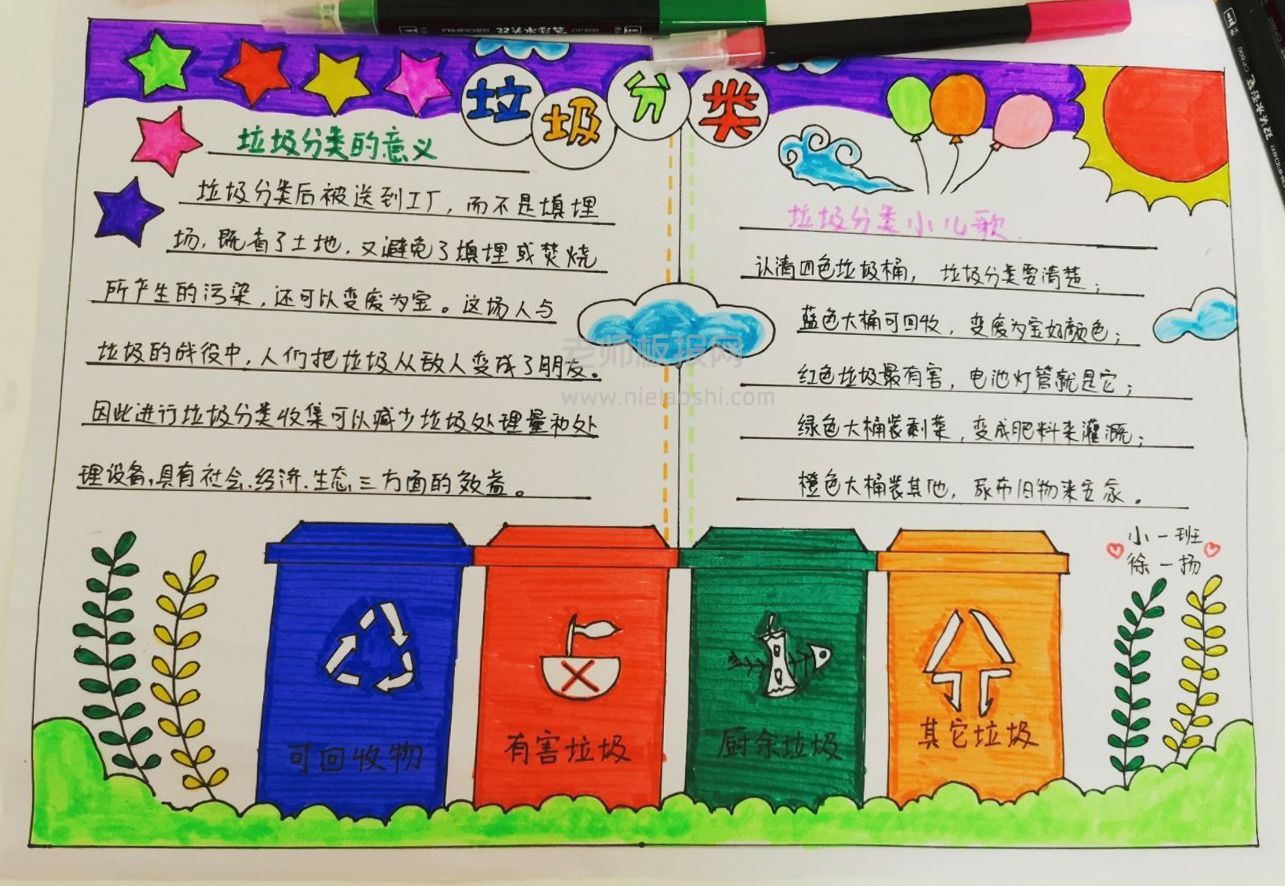 垃圾分类
垃圾分类的意义
垃圾分类后被送到工厂，而不是填埋
场，既省了土地，又避免了填埋或焚烧
所产生的污染，还可以变废为宝。这场人与
垃圾的战役中，人们把垃圾从敌人变成了朋友。
因此进行垃圾分类收集可以减少垃圾处理量和处
理设备，具有社会、经济、生态三方面的效益。
垃圾分类小儿歌
认清四色垃圾桶， 垃圾分类要清楚；
蓝色大桶可回收，变废为宝如颜色；
红色垃圾最有害，电池灯管就是它；
绿色大桶装剩菜，变成肥料来灌溉；
橙色大桶装其他，尿布旧物来安家。
小一班
徐一扬
可回收物
有害垃圾
厨余垃圾
其它垃圾
老师板报网
www.nielaoshi.com